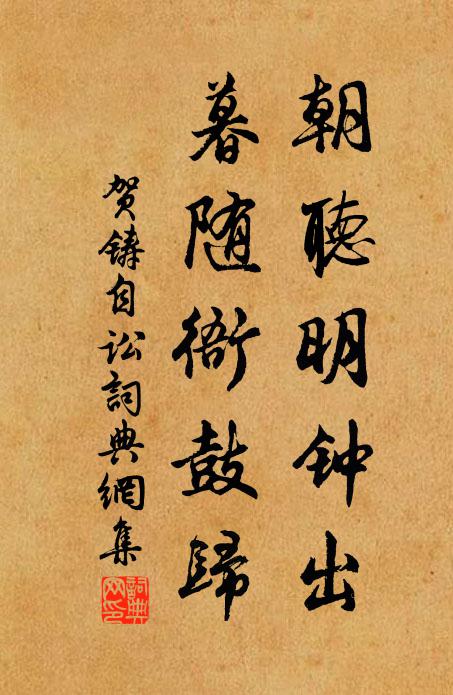 朝聽明钟出
暮随衙鼓歸
贺鑄自讼詞典網集
詞典网印